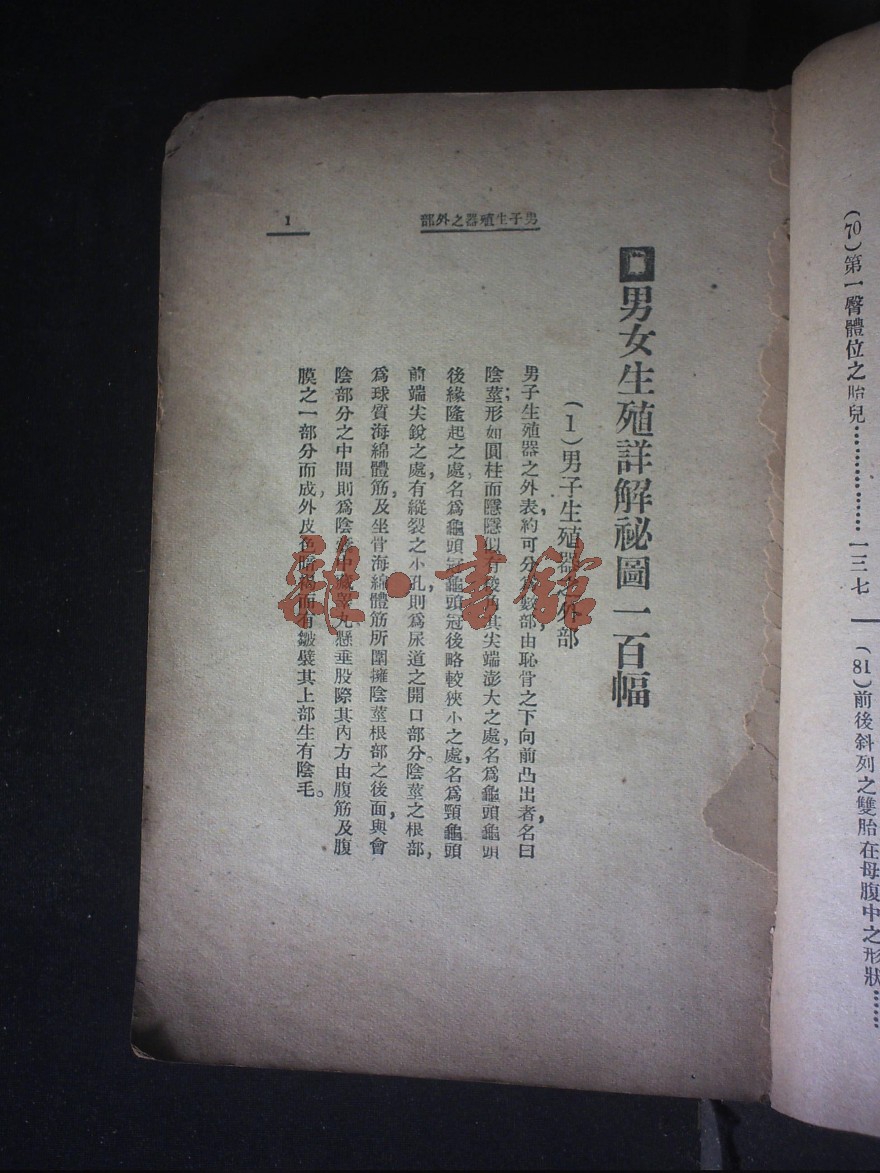 (70)第一臀體位之胎兒……………一三七
(81)前後斜列之雙胎在母腹中之形狀……
男子生殖器之外部
1
男女生殖詳解祕圖一百幅
(1)男子生殖器之外部
男子生殖器之外表,約可分爲數部,由恥骨之下向前凸出者,名曰
陰莖;形如圓柱而隱隱似有稜角其尖端澎大之處,名爲龜頭龜頭
後緣隆起之處,名爲龜頭冠龜頭冠後略較狹小之處,名爲頸龜頭
前端尖銳之處,有縱裂之小孔,則爲尿道之開口部分。陰莖之根部,
爲球質海綿體筋,及坐骨海綿體筋所圍擁陰莖根部之後面,與會
陰部分之中間則爲陰囊中藏睪丸懸垂股際其內方由腹筋及腹
膜之一部分而成,外皮色暗褐而有皺襞其上部生有陰毛。
雜·書館